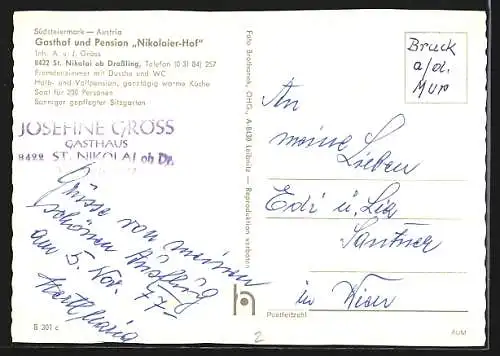 Südsteiermark — Austria
Gasthof und Pension „Nikolaier-Hof"
Inh. A. u. J. Gröss
8422 St. Nikolai ob Draßling, Telefon (0 31 84) 257
Fremdenzimmer mit Dusche und WC
Halb- und Vollpension, ganztägig warme Küche
Saal für 200 Personen
Sorrager gepflegter Sitzgarten
JOSEFINE GRÖSS
GASTHAUS
8422 ST. NIKOLAI ob Dr.
Grüsse von meinem
schönen Ausflug
am 5. Nov. 77
B 301 c
Foto Brothanek, OHG., A-8430 Leibnitz — Reproduktion verboten
Bruck
a/d.
Mur
An
meine
Lieben
Edi u. Lia
Santner
in Wien
Postleitzahl
2
AUM